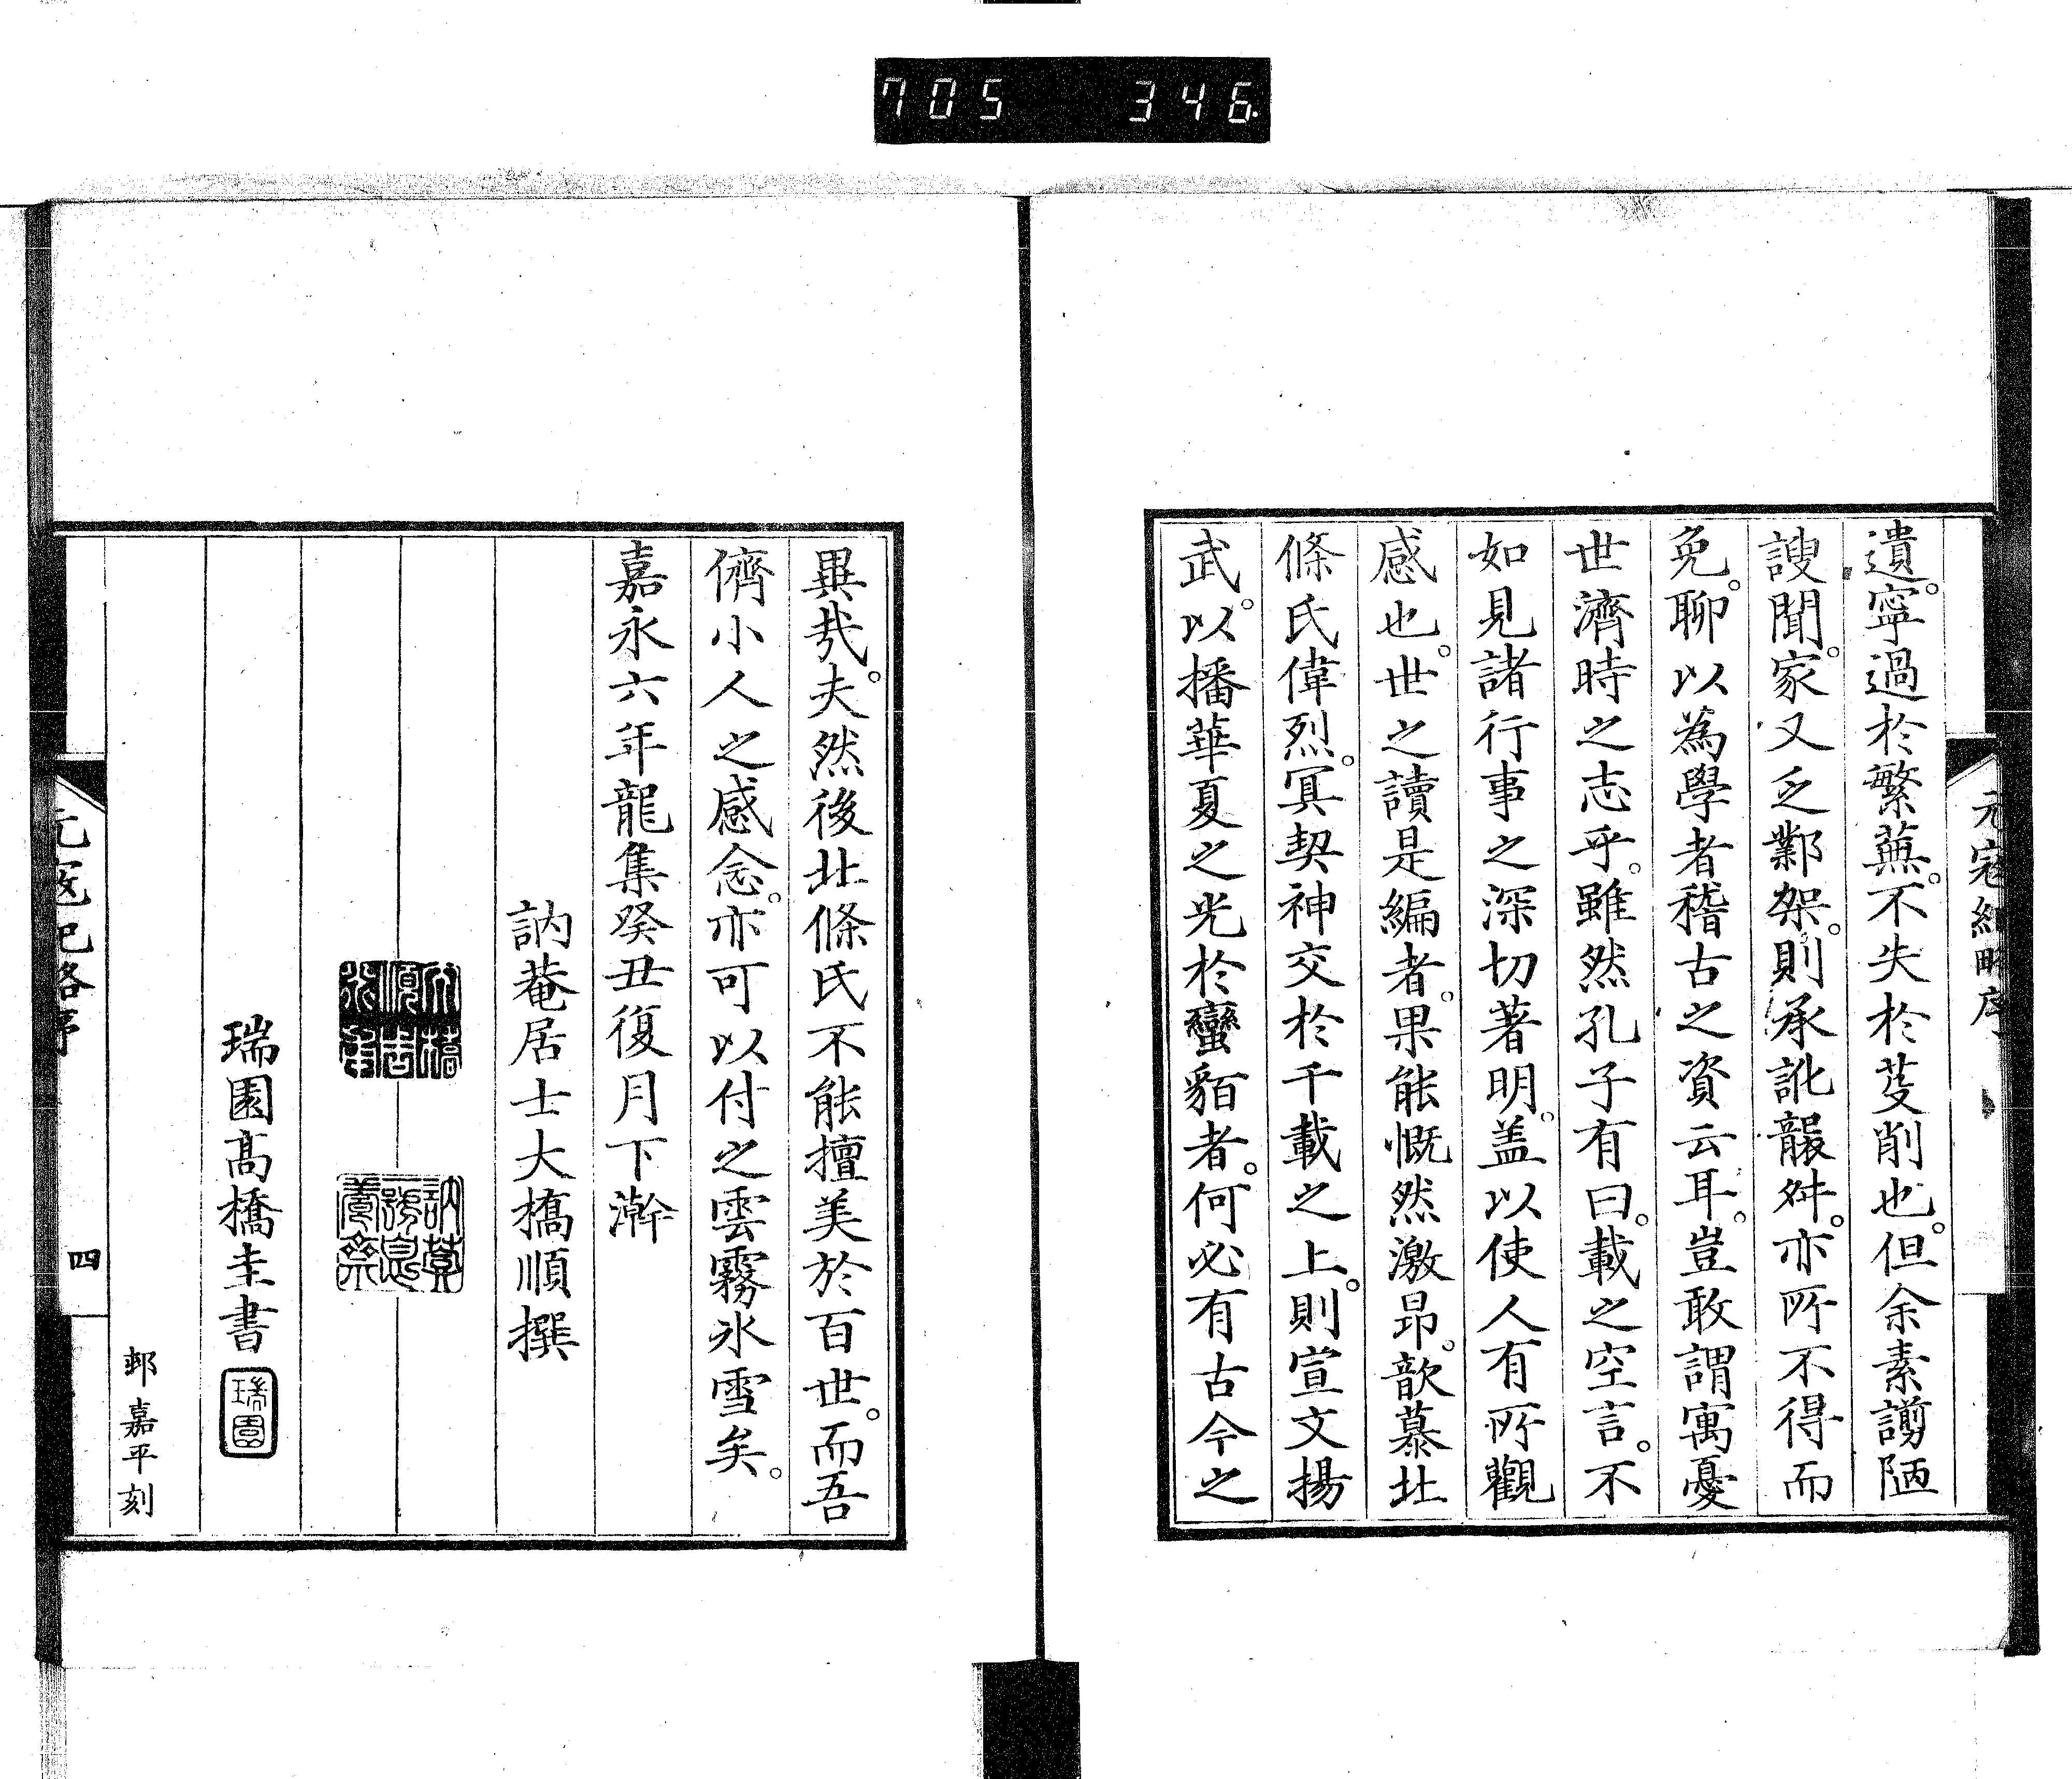 705 346
遺。寧過於繁蕪。不失於芟削也。但余素謭陋
謏聞。家又乏鄴架。則承訛襲舛。亦所不得而
免。聊以為學者稽古之資云耳。豈敢謂寓憂
世濟時之志乎。雖然孔子有曰。載之空言。不
如見諸行事之深切著明。盖以使人有所觀
感也。世之讀是編者。果能慨然激昂。歆慕北
條氏偉烈。冥契神交於千載之上。則宣文揚
武。以播華夏之光於蠻貊者。何必有古今之
異哉。夫然後北條氏不能擅美於百世。而吾
儕小人之感念。亦可以付之雲霧氷雪矣。
嘉永六年龍集癸丑復月下澣
訥菴居士大橋順撰
瑞園高橋圭書
瑞園
邨嘉平刻
元寇紀略序
四